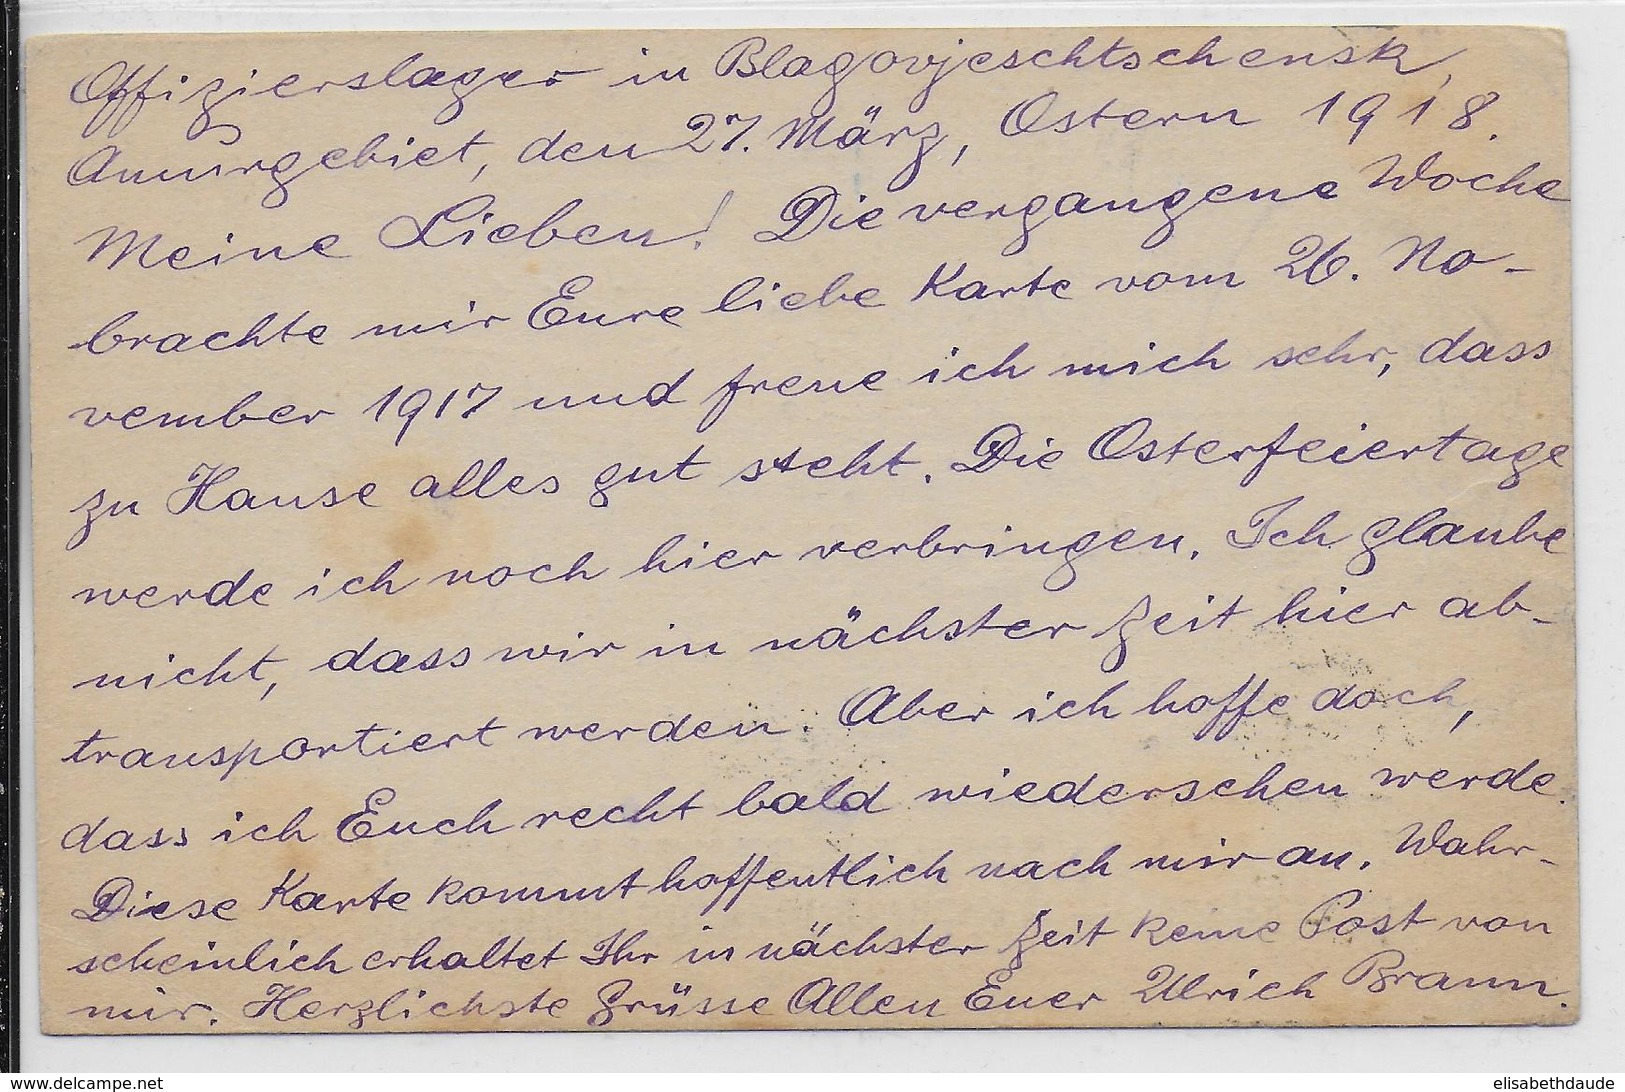 Offizierslager in Blagovjeschtschensk,
Amurgebiet, den 27. März, Ostern 1918.
Meine Lieben! Die vergangene Woche
brachte mir Eure liebe Karte vom 26. No-
vember 1917 und freue ich mich sehr, dass
zu Hause alles gut steht. Die Osterfeiertage
werde ich noch hier verbringen. Ich glaube
nicht, dass wir in nächster Zeit hier ab-
transportiert werden. Aber ich hoffe doch,
dass ich Euch recht bald wiedersehen werde.
Diese Karte kommt hoffentlich nach mir an. Wahr-
scheinlich erhaltet Ihr in nächster Zeit keine Post von
mir. Herzlichste Grüsse Allen Euer Ulrich Braun.
www.delcampe.net
elisabethdaude